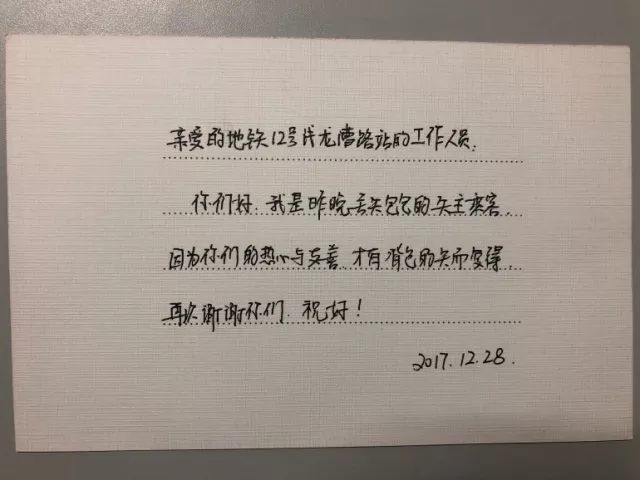 亲爱的地铁12号线龙漕路站的工作人员,
你们好,我是昨晚丢失包包的失主乘客,
因为你们的热心与友善,才有背包的失而复得,
再次谢谢你们,祝好!
2017.12.28.